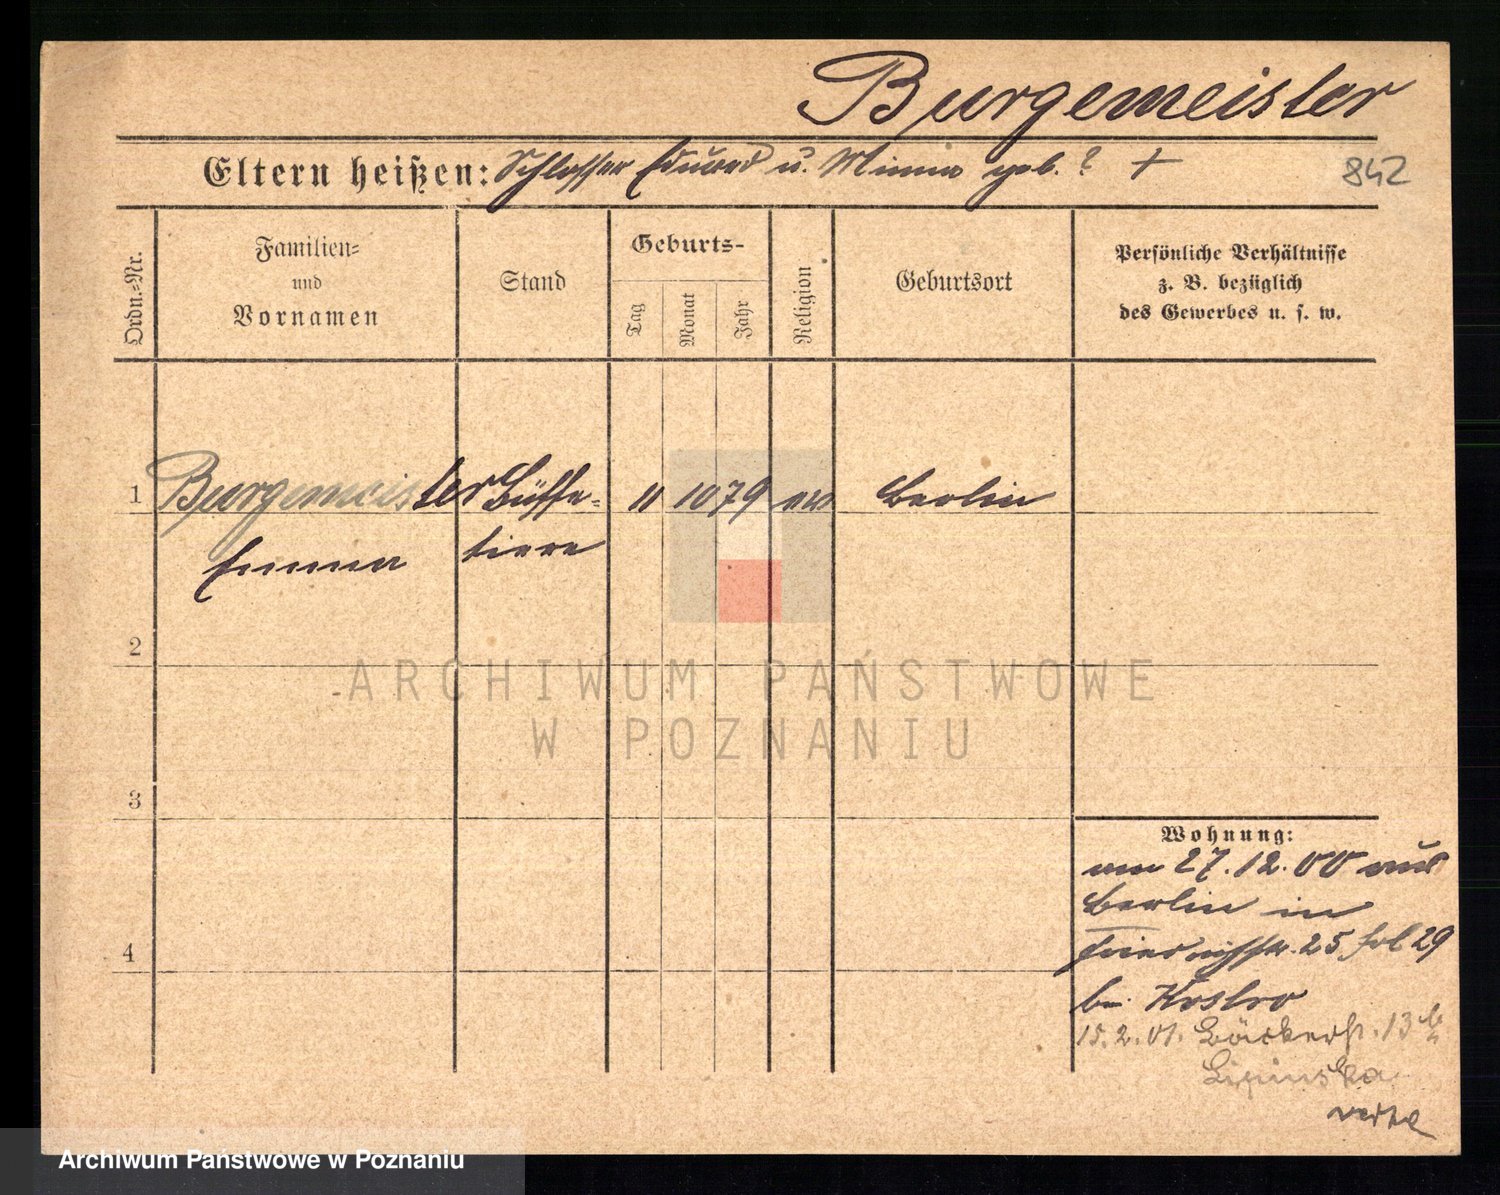 Burgemeister
Eltern heißen: Schlosser Eduard u. Minna geb. ? +
842
Ordn.-Nr.
Familien-
und
Vornamen
Stand
Geburts-
Tag
Monat
Jahr
Religion
Geburtsort
Persönliche Verhältnisse
z. B. bezüglich
des Gewerbes u. s. w.
1 Burgemeister Büffe- 11 10 79 ev Berlin
Emma tiere
2
ARCHIWUM PAŃSTWOWE
W POZNANIU
3
Wohnung:
am 27.12.00 aus
Berlin in
4
Friedrichstr. 25 29
bei Kostro
15.2.01. Bäckerst. 13 b
Lipinska
Archiwum Państwowe w Poznaniu